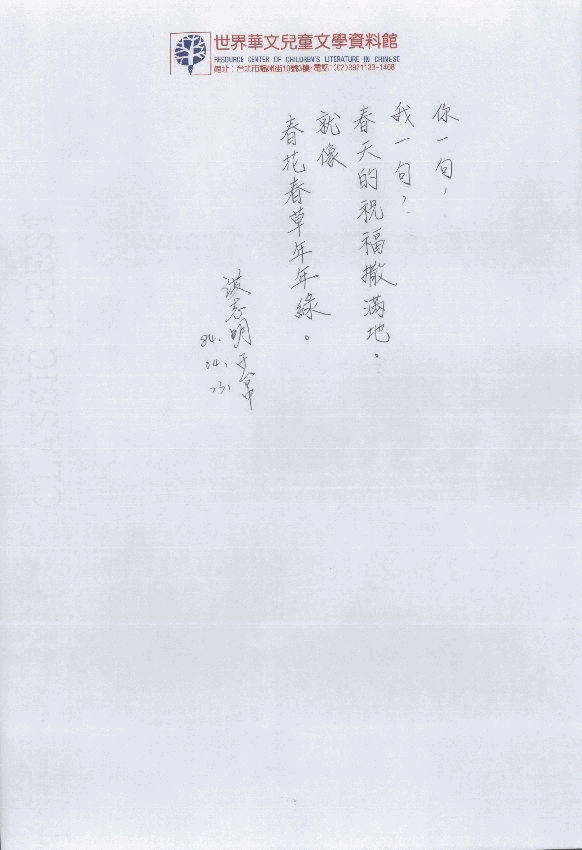 世界華文兒童文學資料館
RESOURCE CENTER OF CHILDREN'S LITERATURE IN CHINESE
館址：台北市福州街10號3樓・電話：(02)3921133-1408
你一句，
我一句，
春天的祝福撒滿地。
就像
春花春草年年綠。
志明于台中
84.
04.
23.
CLASSIC